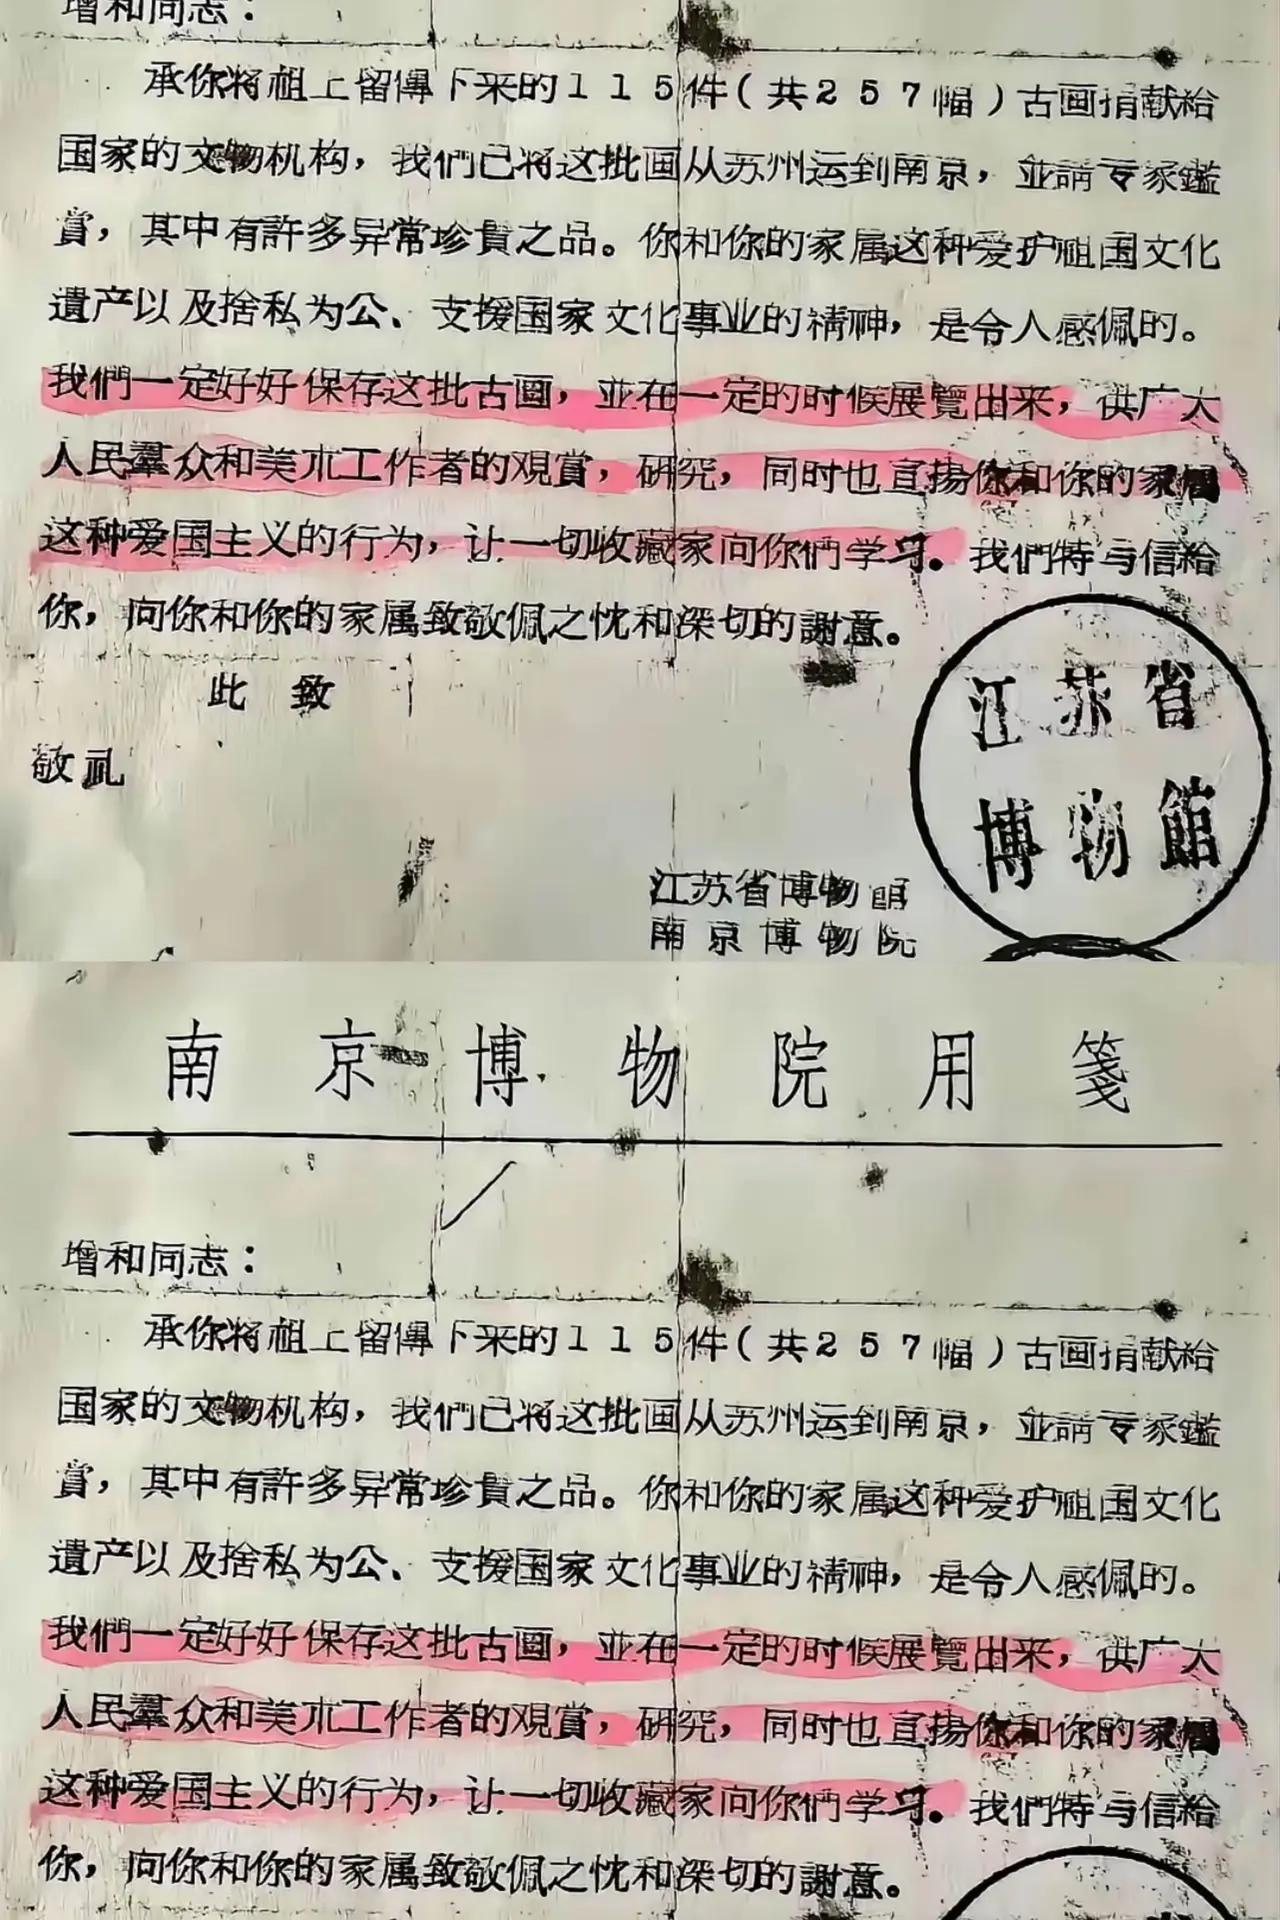 增和同志：
承你将祖上留傳下来的115件（共257幅）古画捐献給
国家的文物机构，我們已将这批画从苏州运到南京，並請专家鑑
賞，其中有許多异常珍貴之品。你和你的家属这种爱护祖国文化
遺产以及捨私为公、支援国家文化事业的精神，是令人感佩的。
我們一定好好保存这批古画，並在一定的时候展覽出来，供广大
人民羣众和美朮工作者的观賞，研究，同时也宣揚你和你的家属
这种爱国主义的行为，让一切收藏家向你們学习。我們特与信給
你，向你和你的家属致敬佩之忱和深切的謝意。
此致
敬礼
江苏省
博物館
江苏省博物館
南京博物院
南京博物院用箋
增和同志：
承你将祖上留傳下来的115件（共257幅）古画捐献給
国家的文物机构，我們已将这批画从苏州运到南京，並請专家鑑
賞，其中有許多异常珍貴之品。你和你的家属这种爱护祖国文化
遺产以及捨私为公、支援国家文化事业的精神，是令人感佩的。
我們一定好好保存这批古画，並在一定的时候展覽出来，供广大
人民羣众和美朮工作者的观賞，研究，同时也宣揚你和你的家属
这种爱国主义的行为，让一切收藏家向你們学习。我們特与信給
你，向你和你的家属致敬佩之忱和深切的謝意。